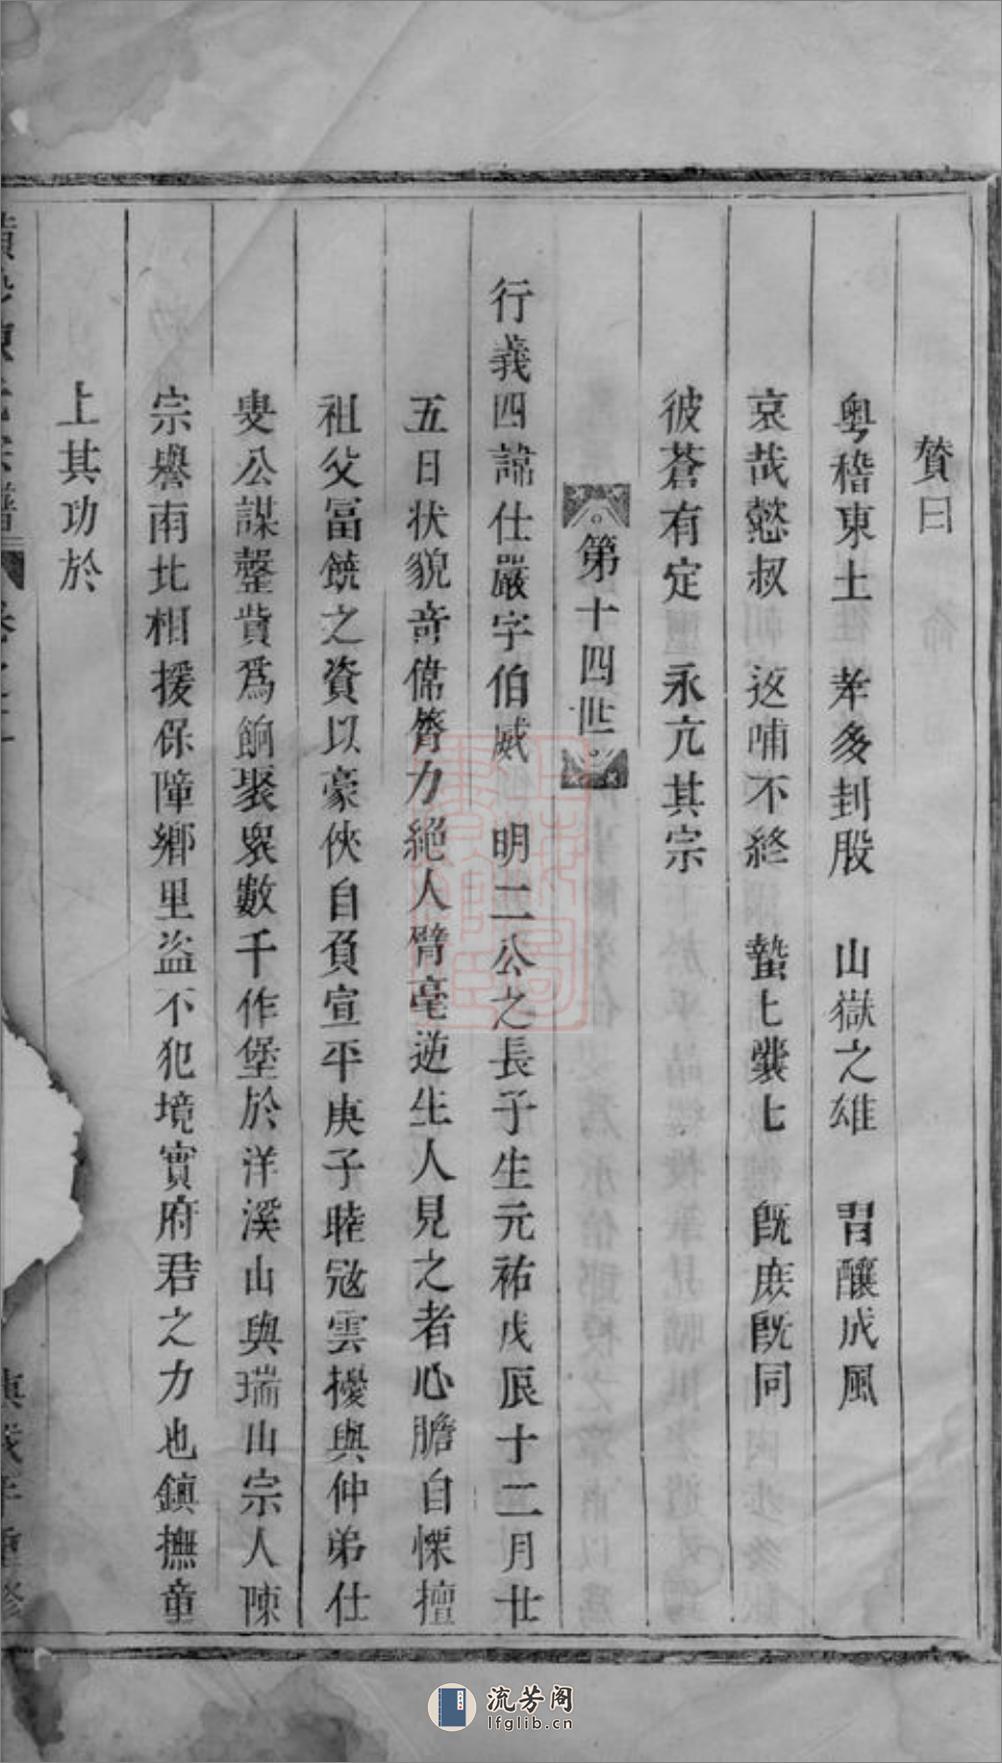 贊曰
粤稽東土 孝多刲股 山嶽之雄 習釀成風
哀哉懿叔 返哺不終 蟄七囊七 旣庶旣同
彼蒼有定 永亢其宗
第十四世
行義四諱仕嚴字伯威 明二公之長子生元祐戊辰十二月廿
五日状貌竒偉膂力絶人臂亳逆生人見之者心膽自慄擅
祖父冨饒之資以豪俠自負宣平庚子睦冦雲擾與仲弟仕
叟公謀罄貲爲餉聚衆數千作堡於洋溪山與瑞山宗人陳
宗譽南北相援保障鄉里盗不犯境實府君之力也鎮撫童
上其功於
重修
流芳阁
lfglib.cn